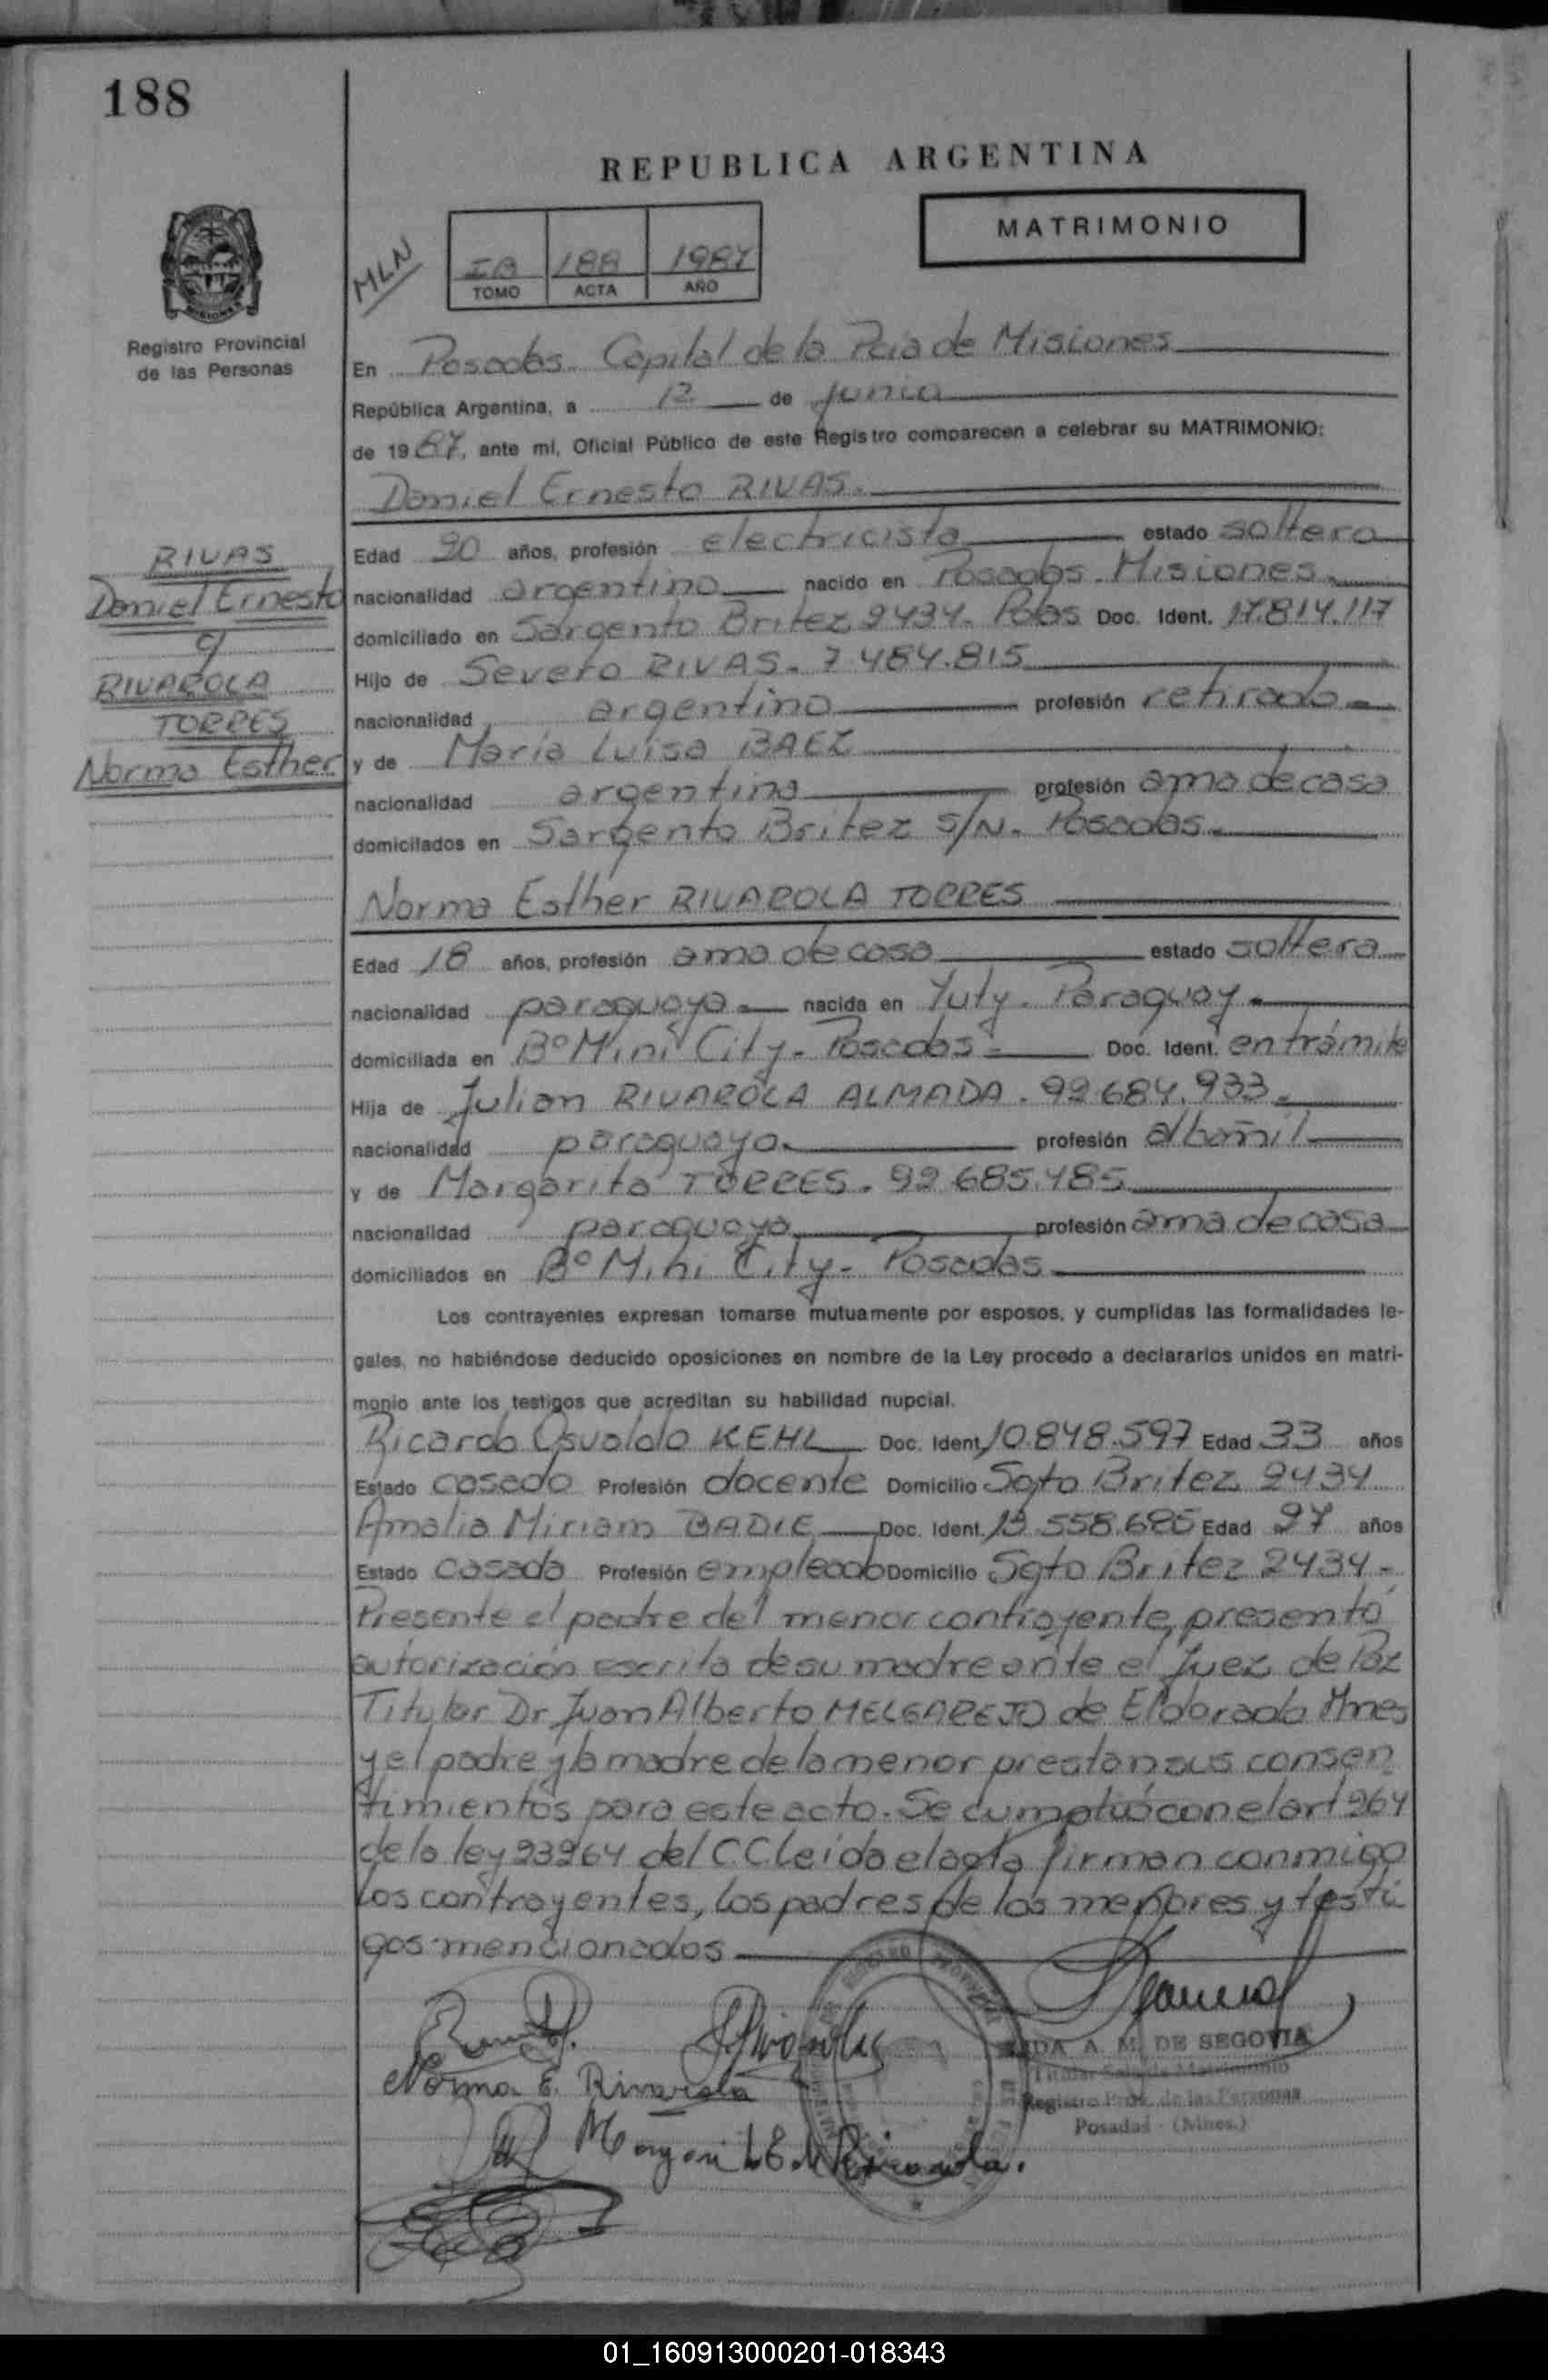 188
REPUBLICA ARGENTINA
MATRIMONIO
MLN
IB 188 1987
TOMO ACTA AÑO
Registro Provincial
de las Personas
En Posadas. Capital de la Pcia de Misiones
República Argentina, a 12 de junio
de 1987, ante mí, Oficial Público de este Registro comparecen a celebrar su MATRIMONIO:
Daniel Ernesto RIVAS.
RIVAS
Daniel Ernesto
c/
RIVAROLA
TORRES
Norma Esther
Edad 20 años, profesión electricista estado soltero
nacionalidad argentino nacido en Posadas. Misiones.
domiciliado en Sargento Britez 2434. Pdas Doc. Ident. 17.814.117
Hijo de Severo RIVAS. 7.484.815
nacionalidad argentino profesión retirado
y de María Luisa BAEZ
nacionalidad argentina profesión ama de casa
domiciliados en Sargento Britez S/N. Posadas.
Norma Esther RIVAROLA TORRES
Edad 18 años, profesión ama de casa estado soltera
nacionalidad paraguaya nacida en Yuty. Paraguay.
domiciliada en Bº Mini City. Posadas Doc. Ident. en trámite
Hija de Julian RIVAROLA ALMADA. 92.684.933
nacionalidad paraguayo profesión albañil
y de Margarita TORRES. 92.685.485
nacionalidad paraguaya profesión ama de casa
domiciliados en Bº Mini City. Posadas
Los contrayentes expresan tomarse mutuamente por esposos, y cumplidas las formalidades le-
gales, no habiéndose deducido oposiciones en nombre de la Ley procedo a declararlos unidos en matri-
monio ante los testigos que acreditan su habilidad nupcial.
Ricardo Osvaldo KEHL Doc. Ident. 10.848.597 Edad 33 años
Estado casado Profesión docente Domicilio Sgto Britez 2434
Amalia Miriam BADIE Doc. Ident. 13.558.685 Edad 27 años
Estado casada Profesión empleada Domicilio Sgto Britez 2434.
Presente el padre del menor contrayente, presentó
autorización escrita de su madre ante el Juez de Paz
Titular Dr Juan Alberto MELGAREJO de Eldorado Mnes
y el padre y la madre de la menor prestan sus consen
timientos para este acto. Se cumplió con el art 264
de la ley 23264 del C.C Leida el acta firman conmigo
los contrayentes, los padres de los menores y testi
gos mencionados
Norma E. Rivarola
A. M. DE SEGOVIA
Titular Sala de Matrimonio
Registro Prov. de las Personas
Posadas - (Mnes.)
01_160913000201-018343